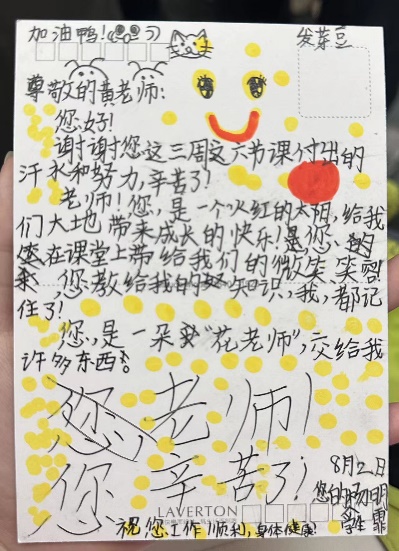 加油鸭!
发芽豆
尊敬的黄老师:
您好!
谢谢您这三周六节课付出的
汗水和努力,辛苦了!
老师!您,是一个火红的太阳,给我
们大地带来成长的快乐!是您,
在课堂上带给我们的微笑、笑容!
您教给我的知识,我,都记
住了!
您,是一朵"花老师",交给我
许多东西。
您老师!
你辛苦了!
8月2日
您的
学生
LAVERTON
祝您工作顺利,身体健康!